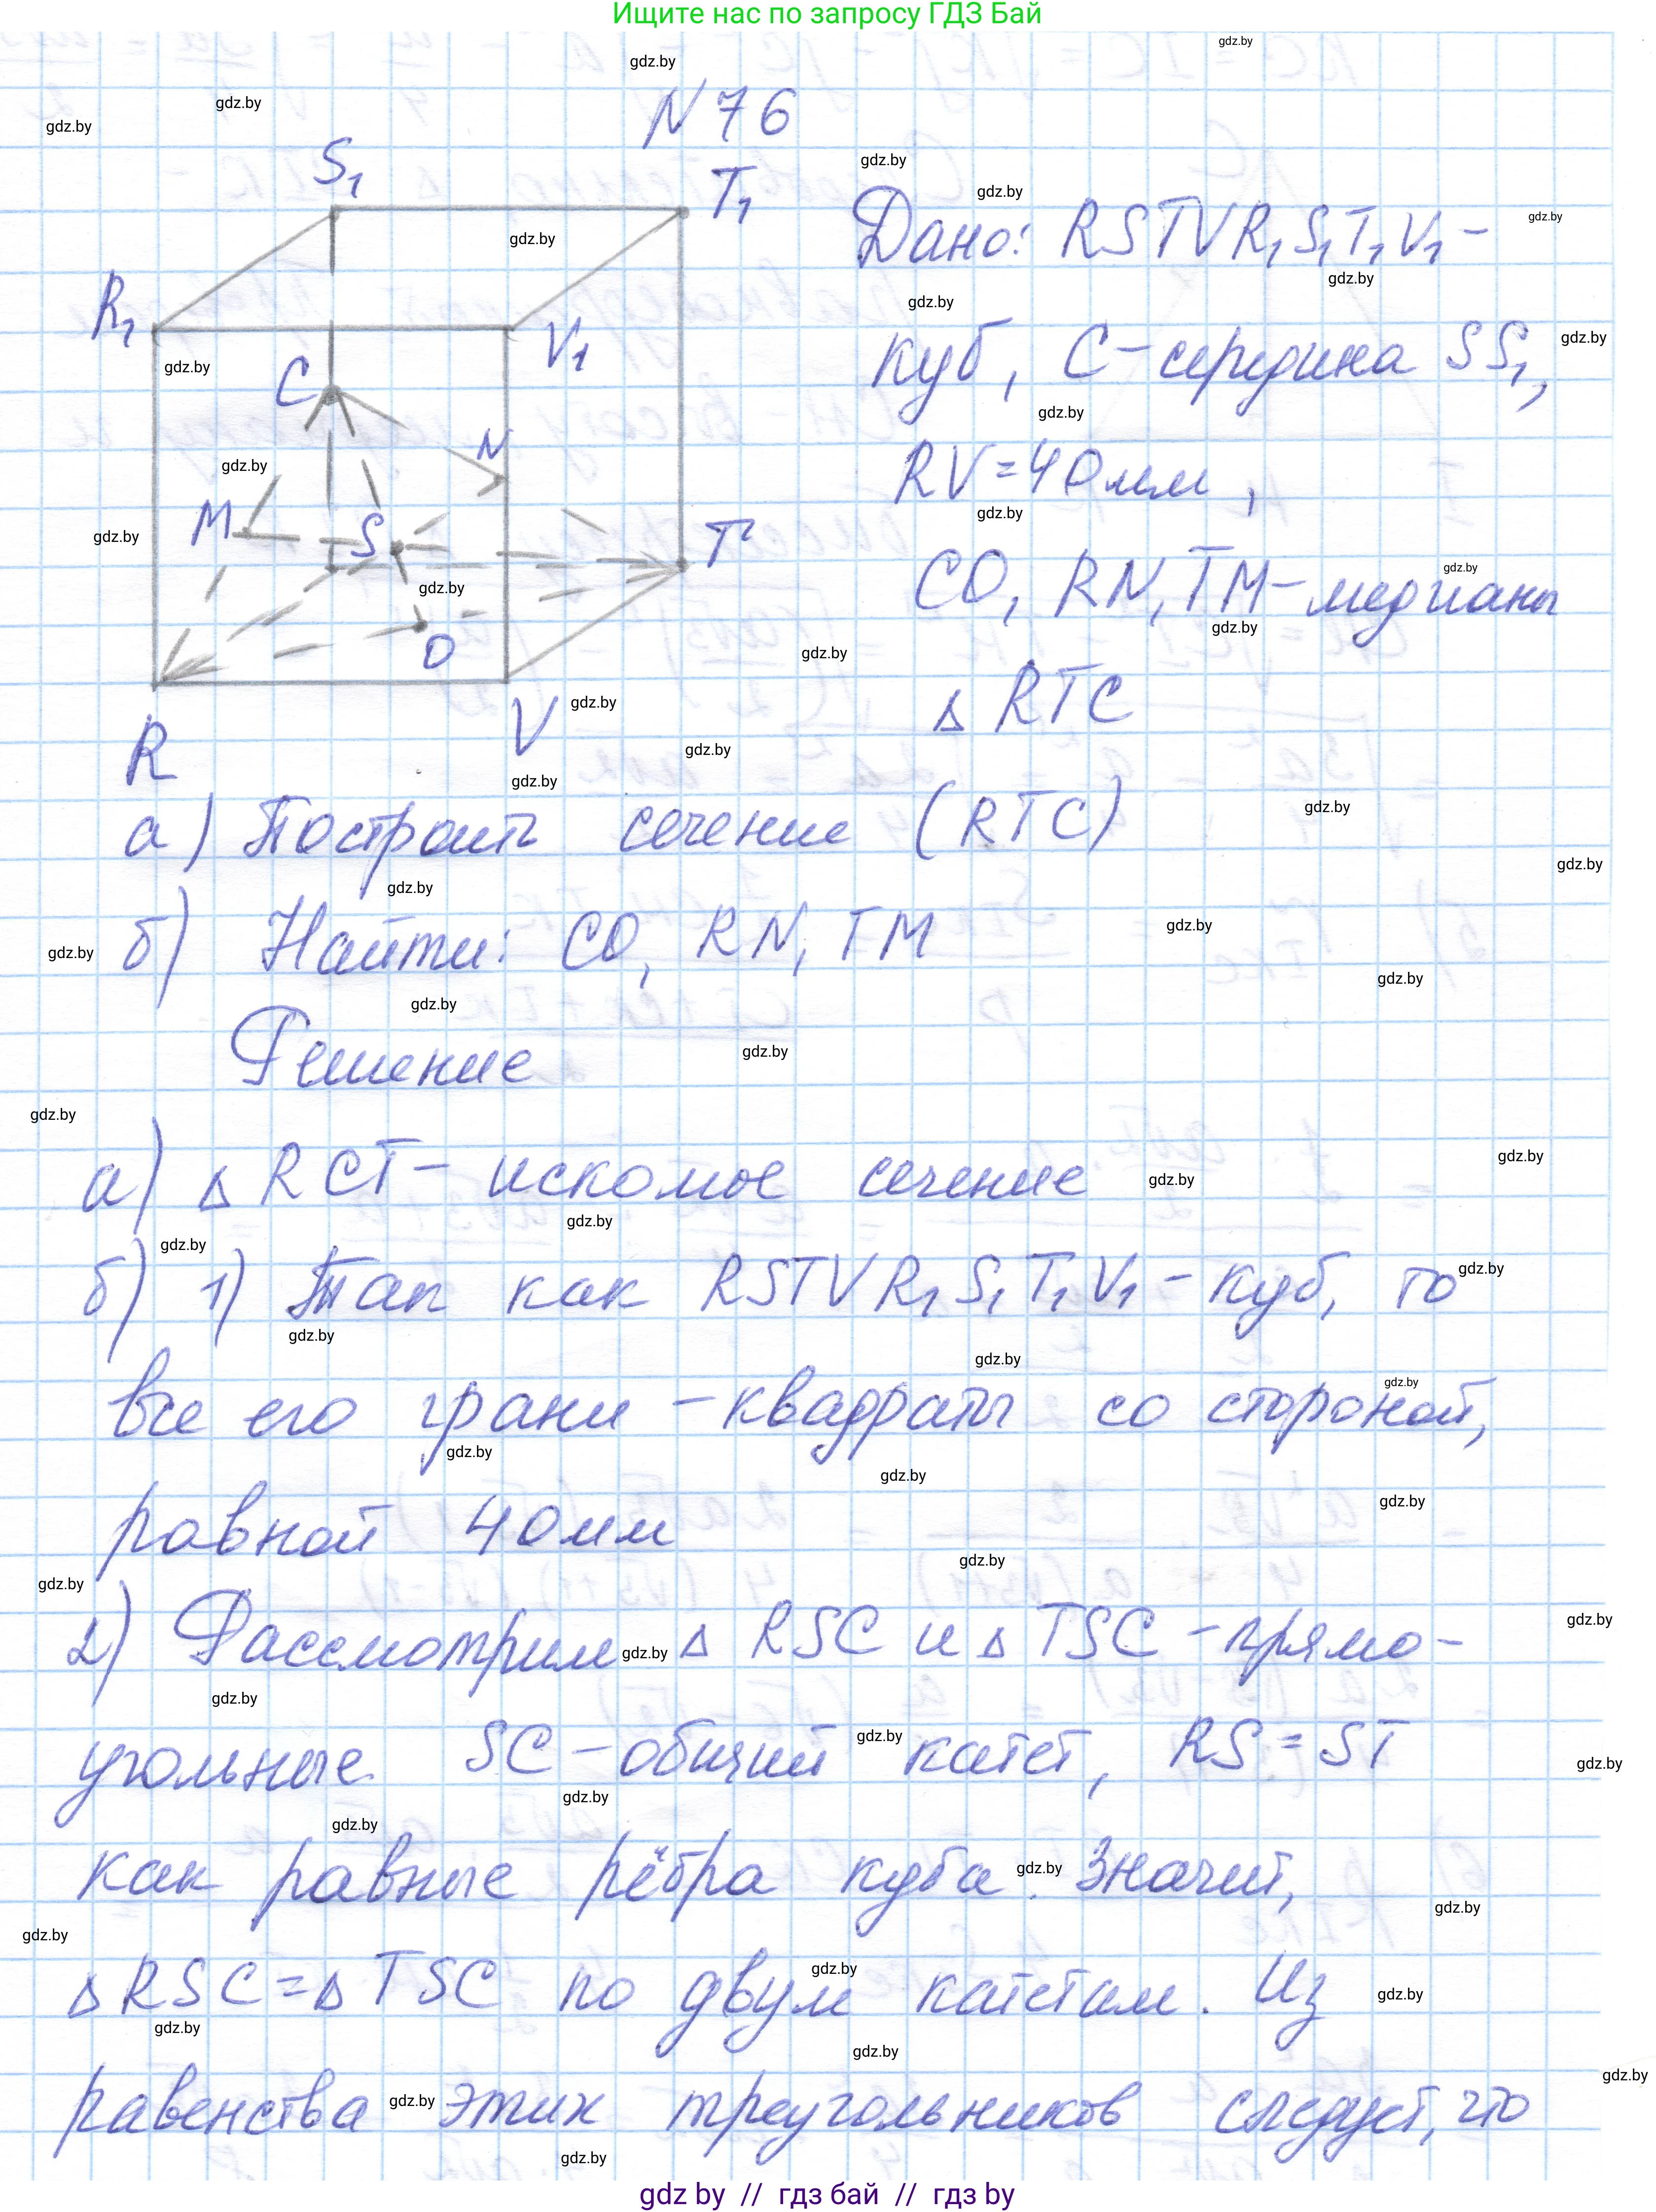 Ищите нас по запросу ГДЗ Бай
N 76
S₁
T₁
R₁
V₁
C
N
M
S
T
O
V
R
Дано: RSTVR₁S₁T₁V₁ –
куб, C – середина SS₁,
RV = 40 мм,
CO, RN, TM – медианы
△ RTC
а) Построить сечение (RTC)
б) Найти: CO, RN, TM
Решение
а) △ RCT – искомое сечение
б) 1) Так как RSTVR₁S₁T₁V₁ – куб, то
все его грани – квадраты со стороной,
равной 40 мм
2) Рассмотрим △ RSC и △ TSC – прямо-
угольные. SC – общий катет, RS = ST
как равные рёбра куба. Значит,
△ RSC = △ TSC по двум катетам. Из
равенства этих треугольников следует, что
gdz by // гдз бай // гдз by